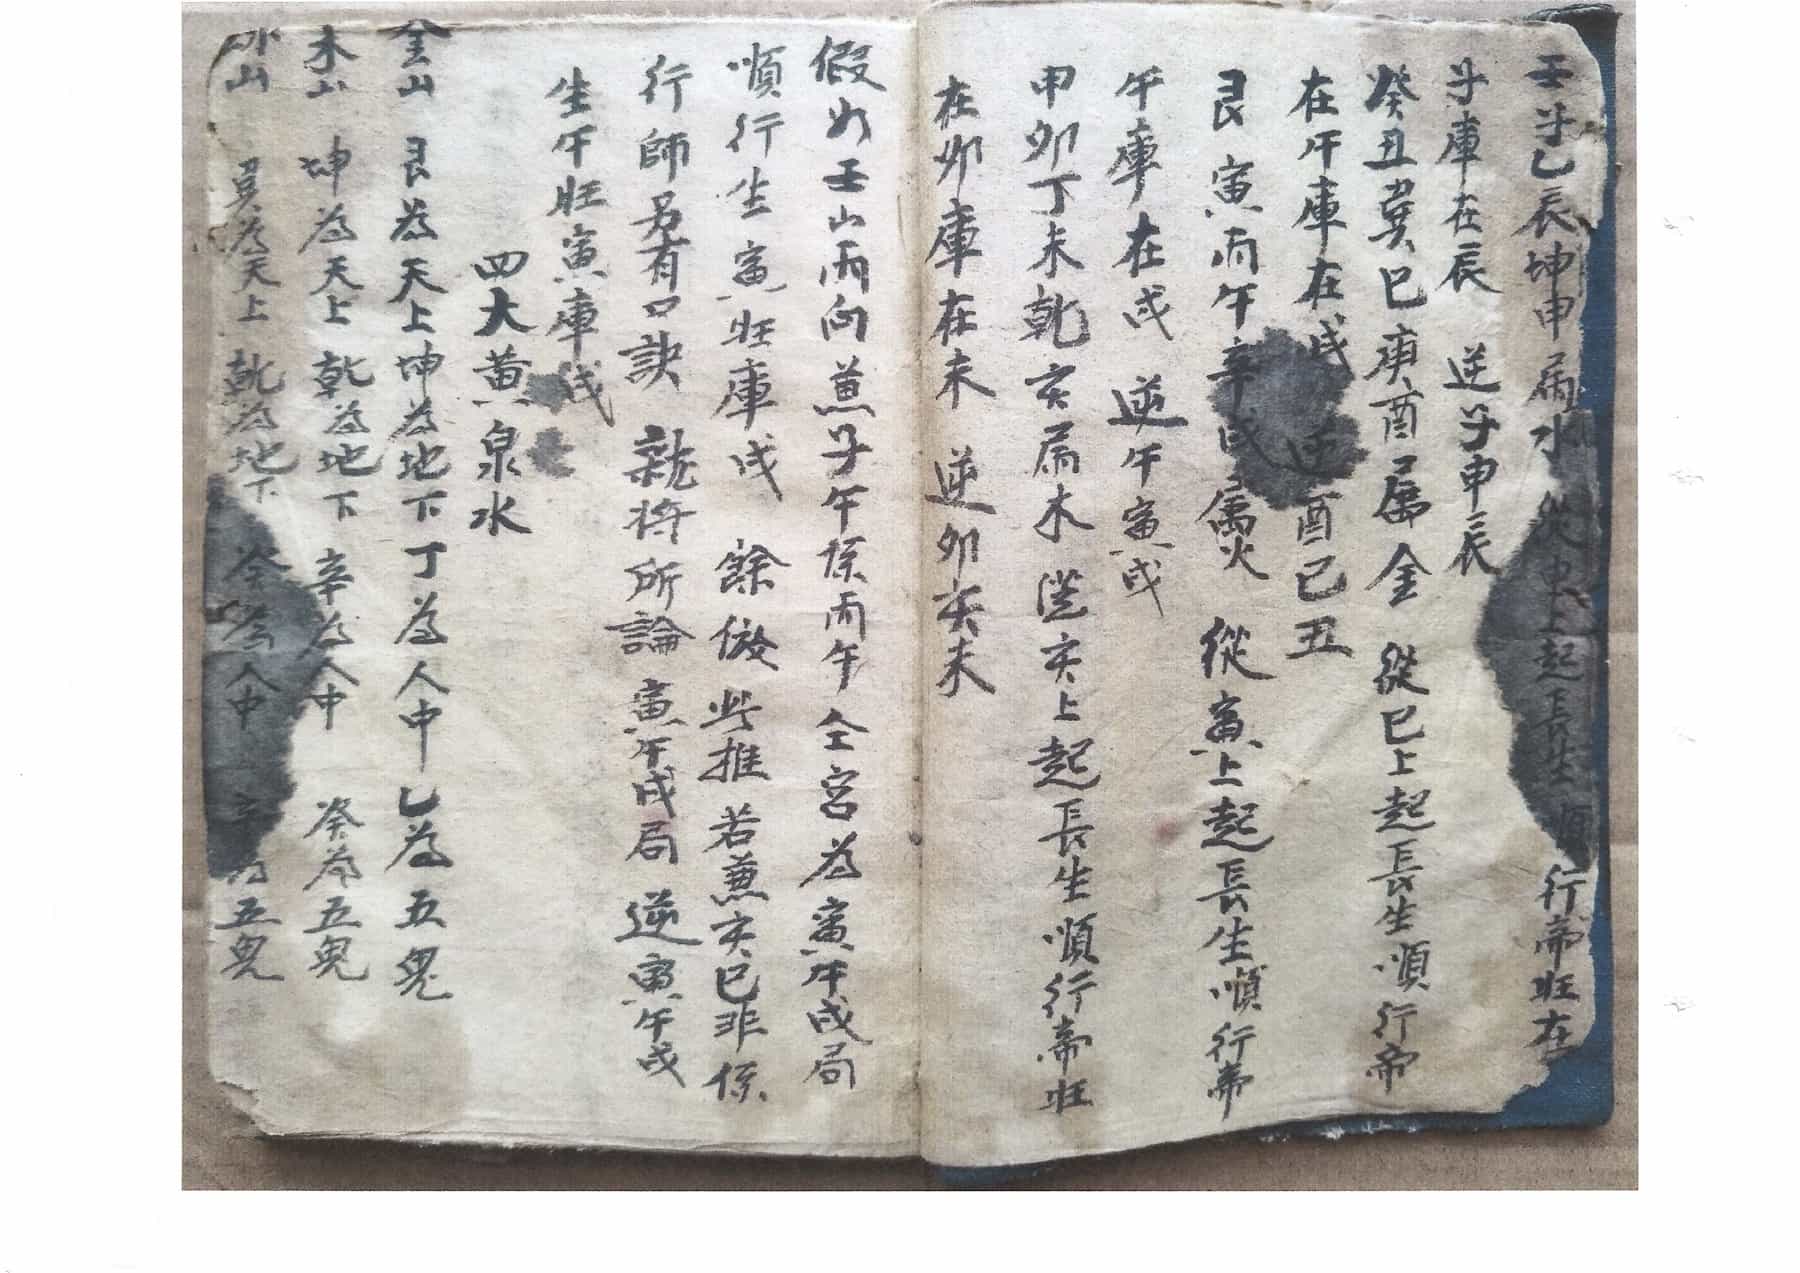 壬子乙辰坤申屬水從申上起長生順行帝旺在
子庫在辰 逆子申辰
癸丑巽巳庚酉屬金 從巳上起長生順行帝
在午庫在戌 逆酉巳丑
艮寅丙午辛戌屬火 從寅上起長生順行帝
午庫在戌 逆午寅戌
甲卯丁未乾亥屬木從亥上起長生順行帝旺
在卯庫在未 逆卯亥未
假如壬山丙向兼子午係丙午仝宮為寅午戌局
順行生寅旺庫戌 餘倣此推若兼亥巳非係
行師另有口訣 就將所論寅午戌局逆寅午戌
生午旺寅庫戌
四大黃泉水
金山 艮為天上坤為地下丁為人中乙為五鬼
木山 坤為天上乾為地下 辛為人中 癸為五鬼
山 巽為天上 乾為地下 為人中 辛為五鬼